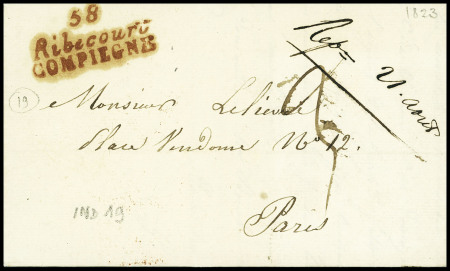 58
Ribecourt
COMPIEGNE
1823
Repn 21 août
19
Monsieur Lelievre
Place Vendome No 12.
IND 19
Paris